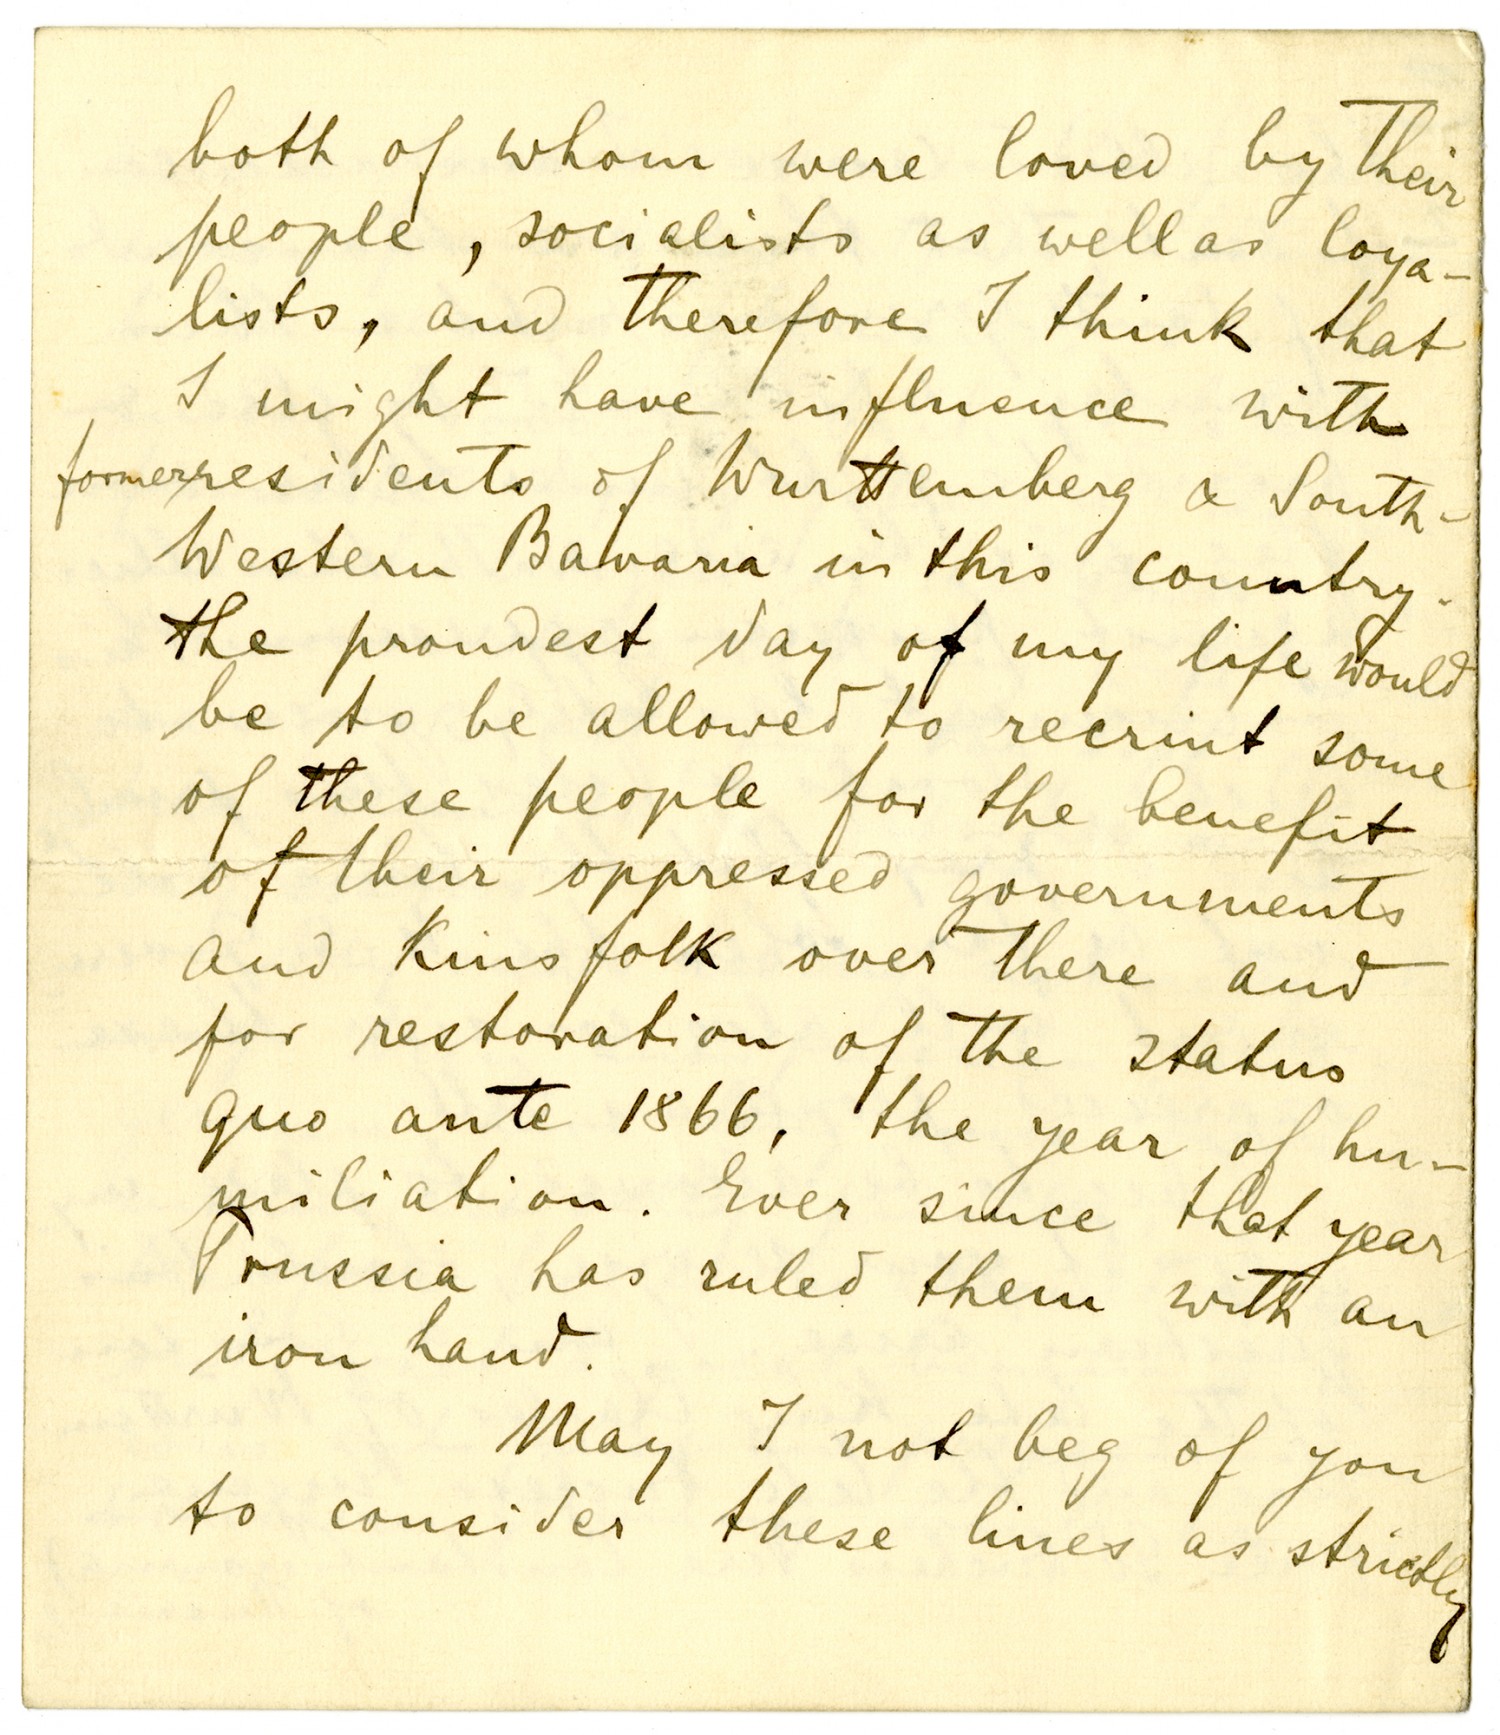 both of whom were loved by their
people, socialists as well as loya-
lists, and therefore I think that
I might have influence with
former residents of Wurttemberg & South-
Western Bavaria in this country.
the proudest day of my life would
be to be allowed to recruit some
of these people for the benefit
of their oppressed governments
and Kinsfolk over there and
for restoration of the status
quo ante 1866, the year of hu-
miliation. Ever since that year
Prussia has ruled them with an
iron hand.
May I not beg of you
to consider these lines as strictly